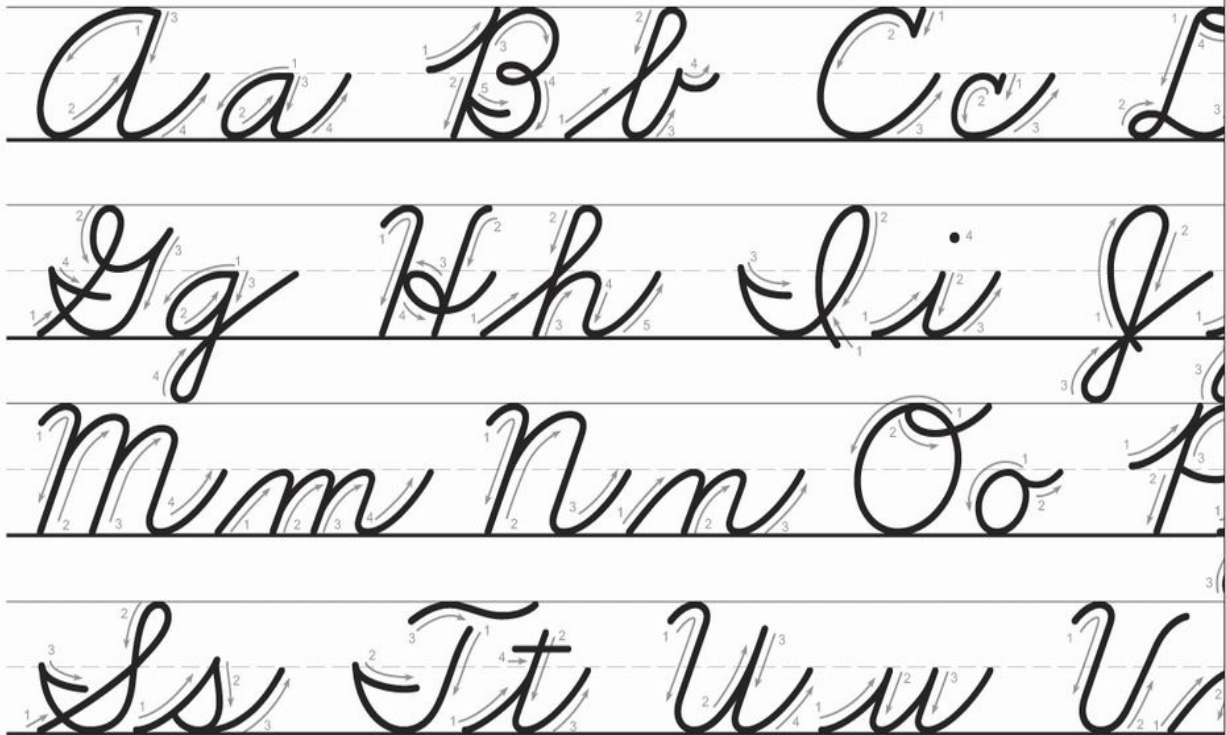 Aa Bb Cc D
Gg Hh Ii J
Mm Nn Oo P
Ss Tt Uu V